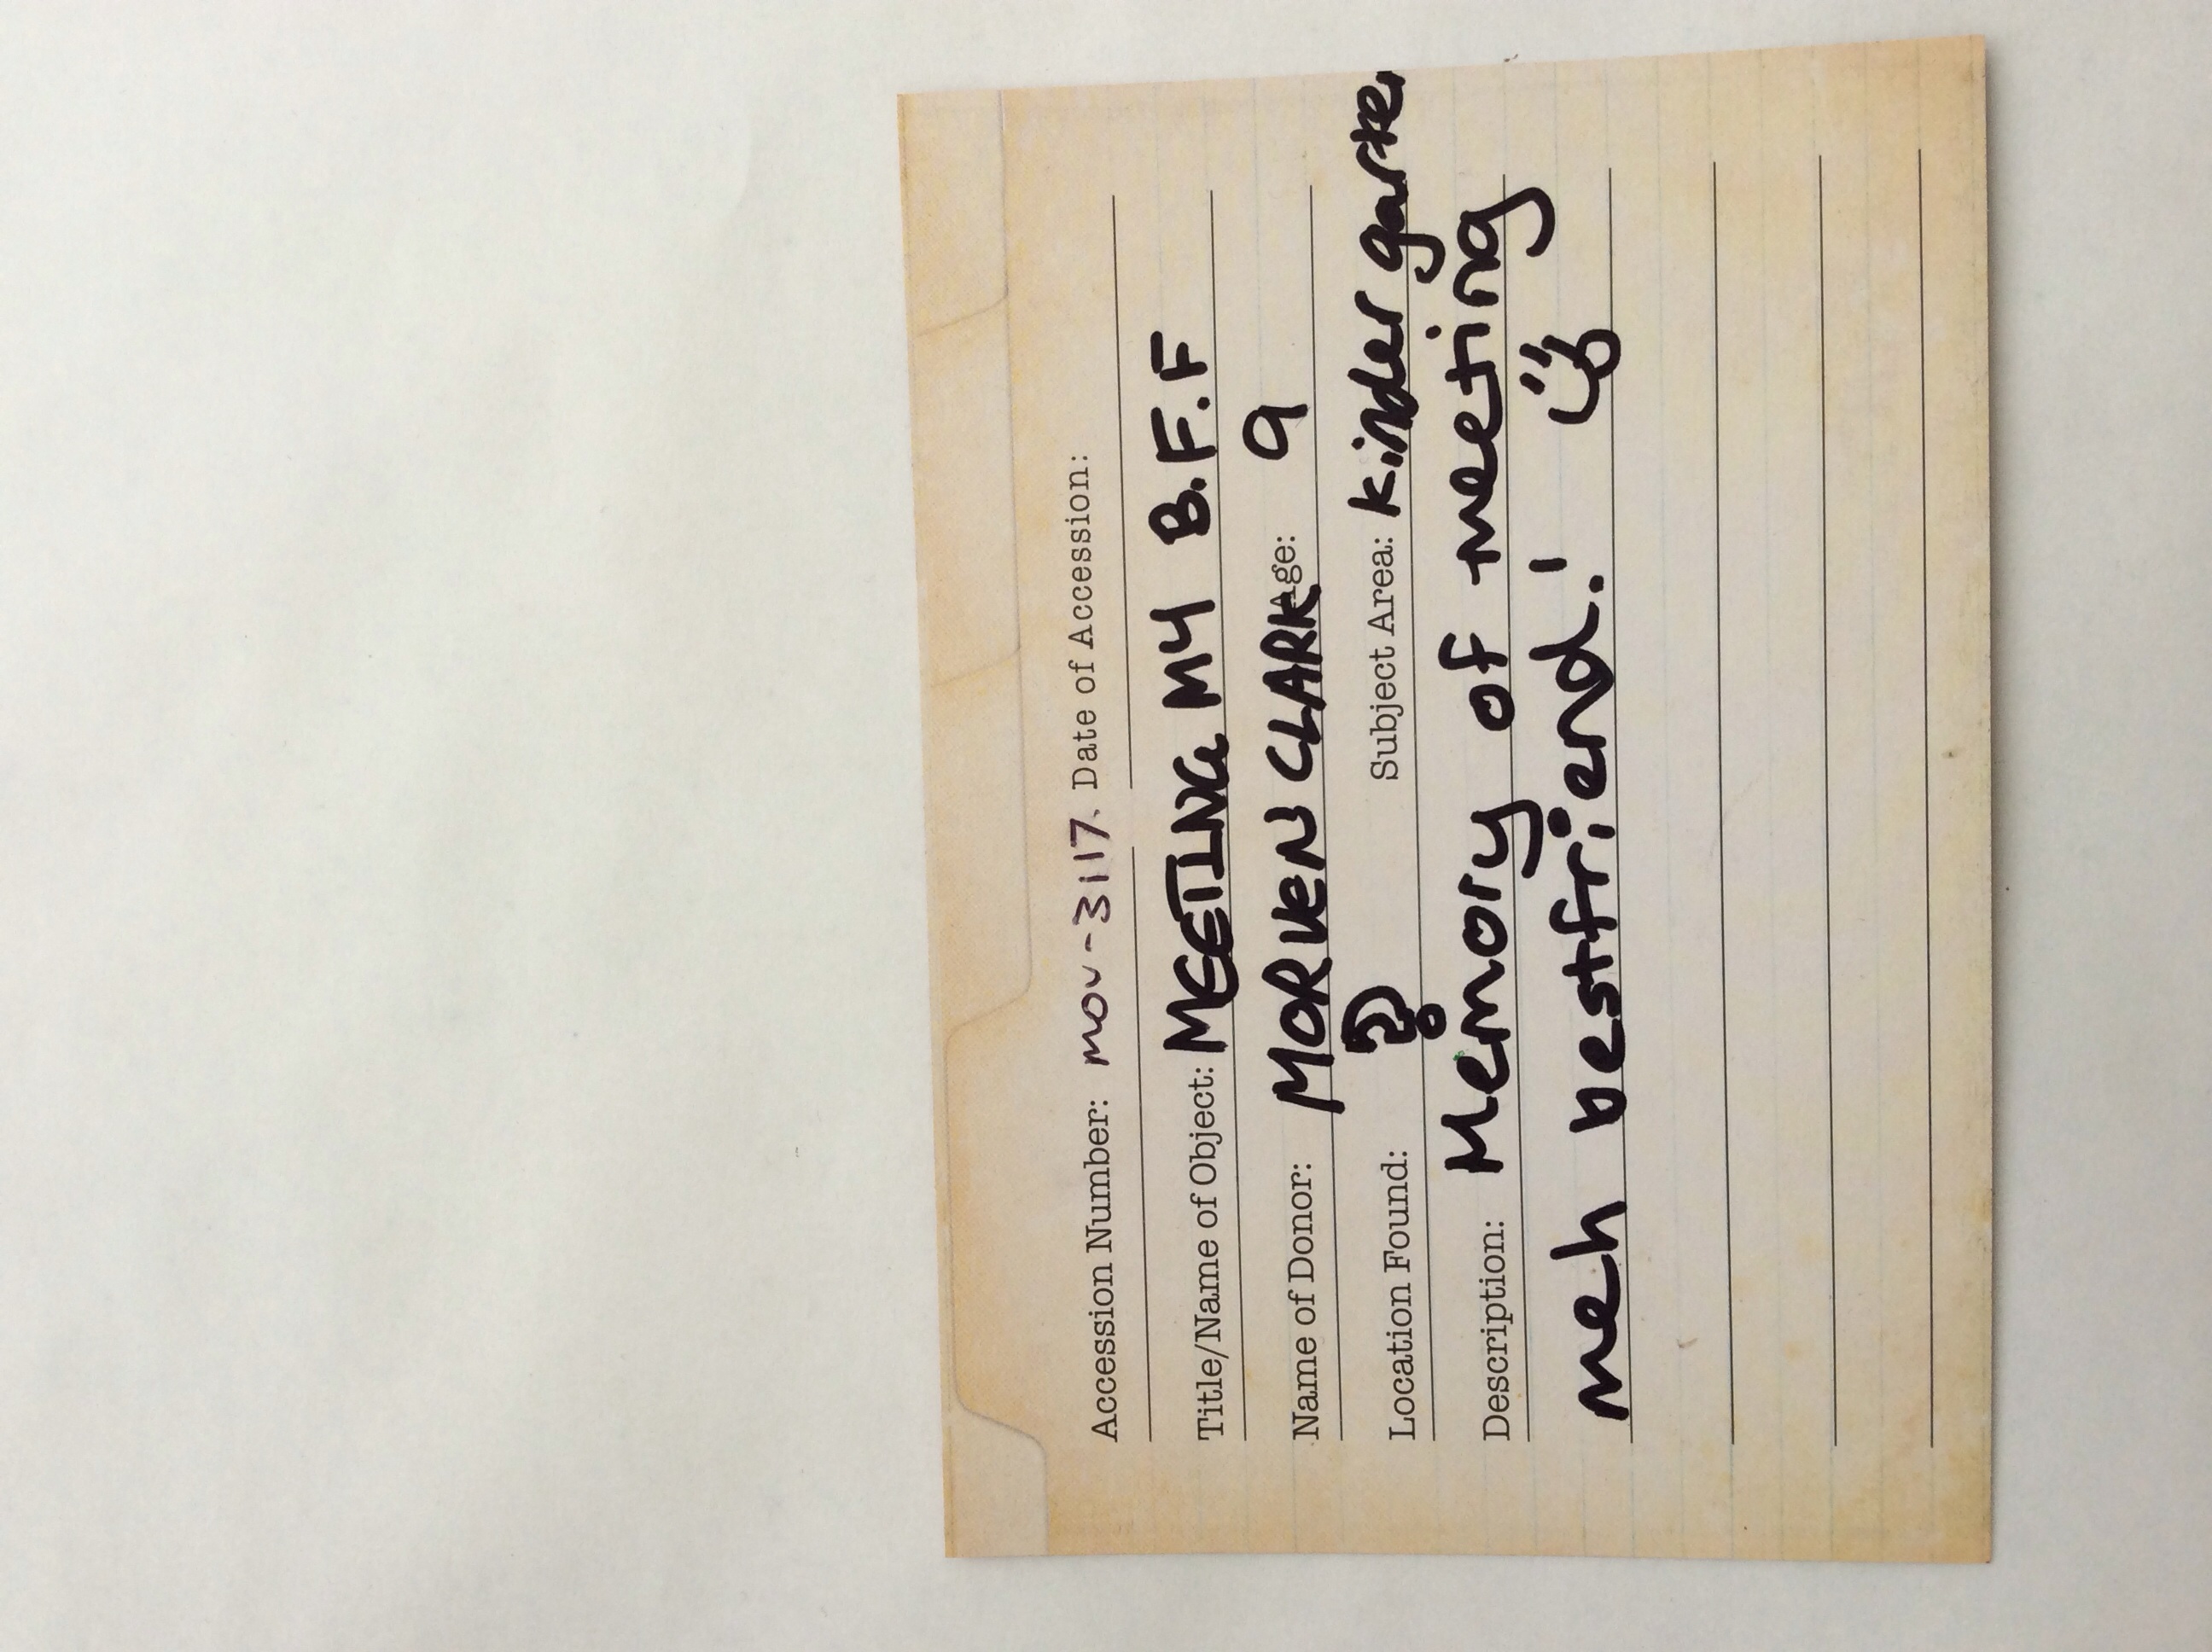 Accession Number: mov-3117. Date of Accession:
Title/Name of Object: MEETING MY B.F.F
Name of Donor: MORVEN CLARK Age: 9
Location Found: ? Subject Area: kindergarten
Description: Memory of meeting
meh bestfriend!